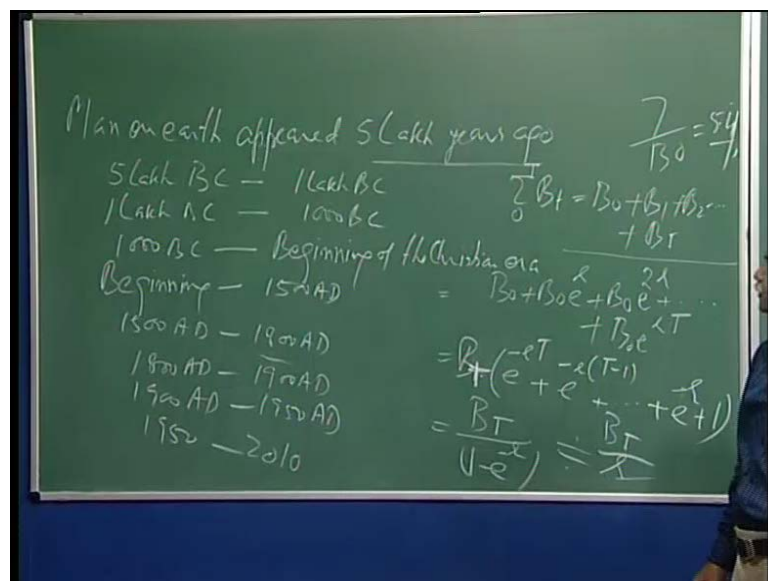 Man on earth appeared 5 Lakh years ago
5 Lakh BC — 1 Lakh BC
1 Lakh BC — 1000 BC
1000 BC — Beginning of the Christian era
Beginning — 1500 AD
1500 AD — 1900 AD
1800 AD — 1900 AD
1900 AD — 1950 AD
1950 — 2010
7/130 =
T Σ 0 Bt = B0 + B1 + B2 ...
+ BT
= B0 + B0e^r + B0e^2r + ....
+ B0e^rT
= BT (e^-rT + e^-r(T-1)
+ .... + e^-r + 1)
= BT/(1-e^-r) ≑ BT/r